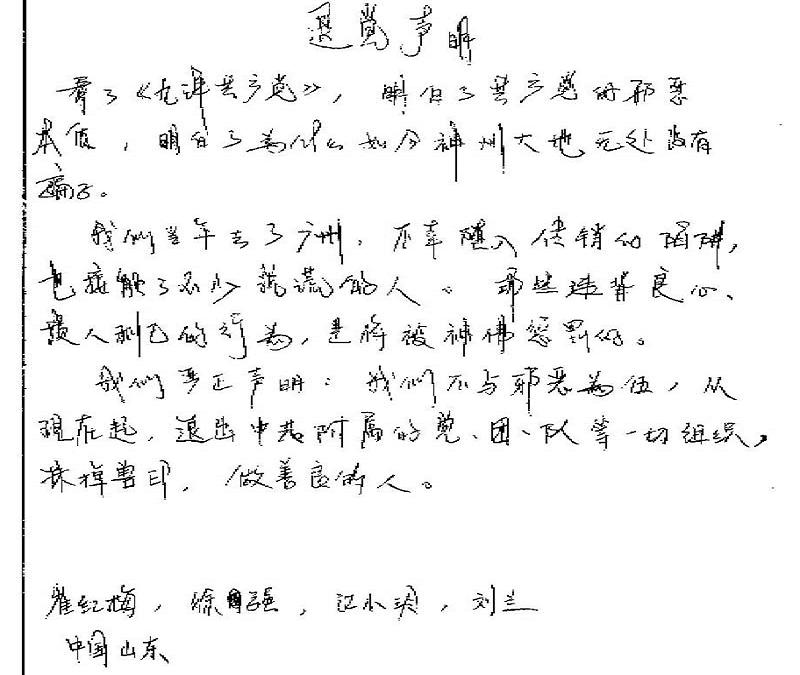 退党声明
看了《九评共产党》，明白了共产党的邪恶
本质，明白了为什么如今神州大地无处没有
骗子。
我们当年去了广州，不幸堕入传销的陷阱，
也接触了不少说谎的人。那些违背良心、
损人利己的行为，是将被神佛惩罚的。
我们严正声明：我们不与邪恶为伍，从
现在起，退出中共附属的党、团、队等一切组织，
抹掉兽印，做善良的人。
翟红梅，徐强，江小，刘兰
中国山东